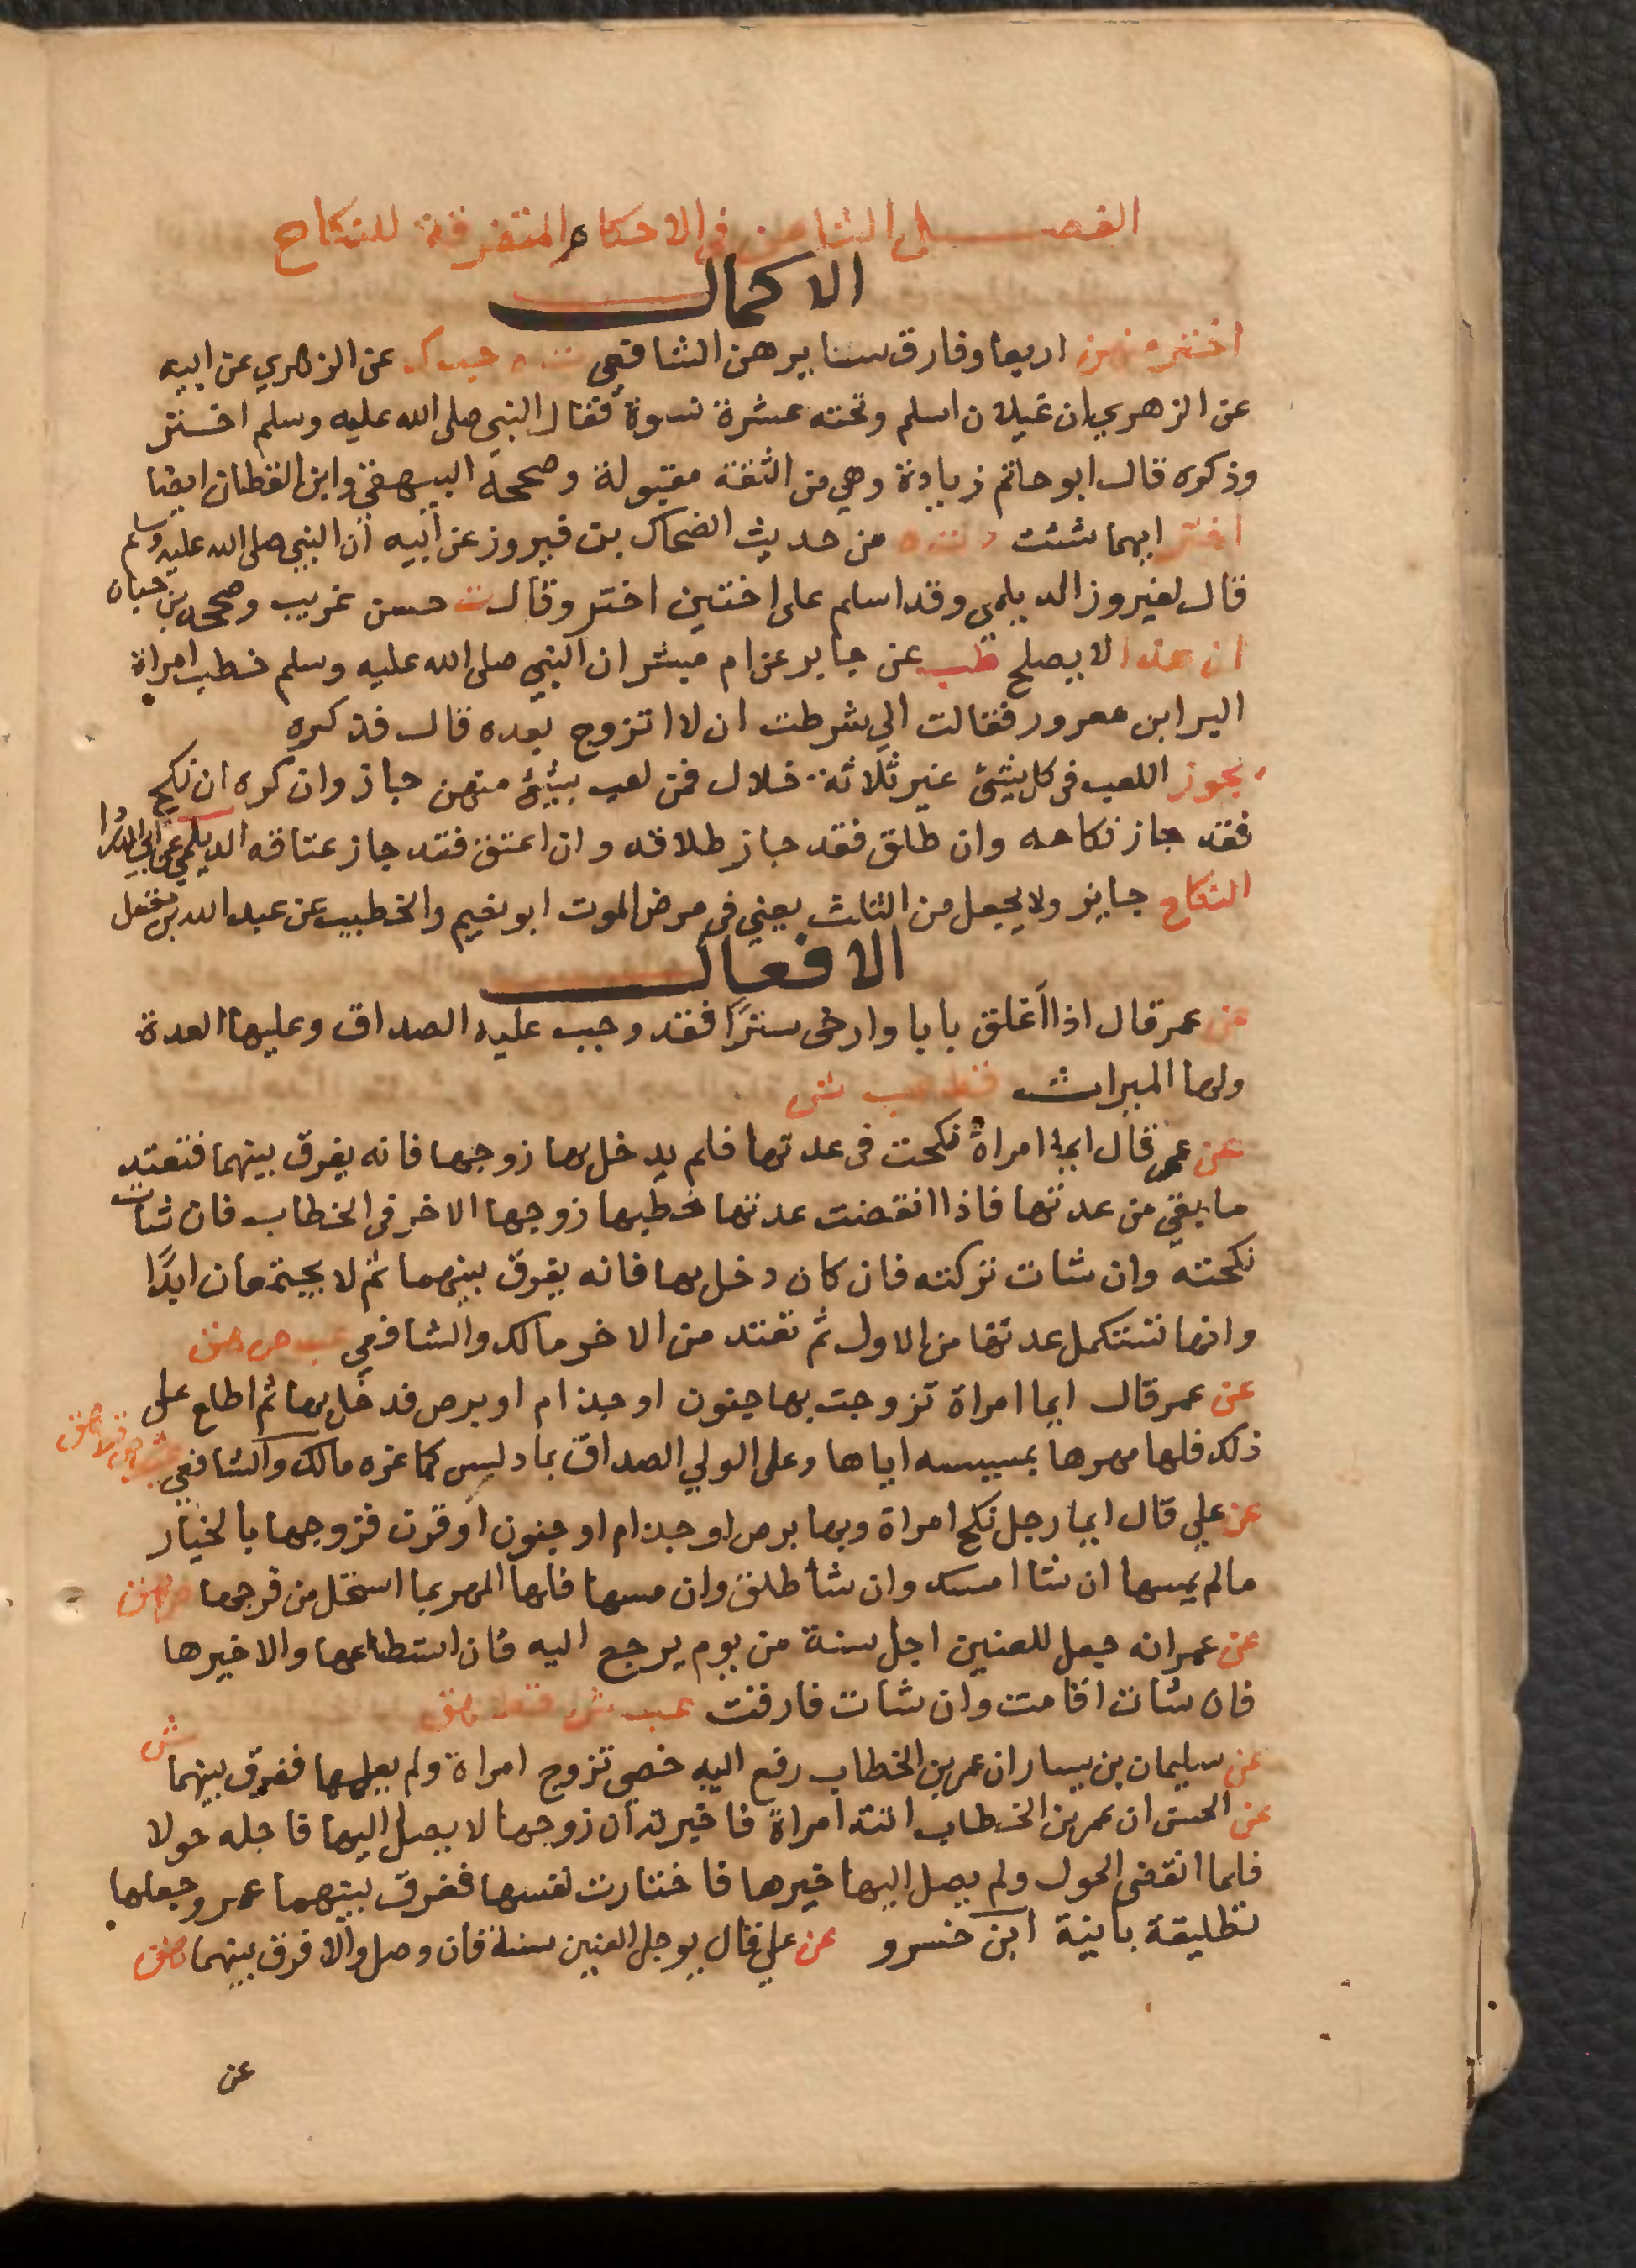 الفصل الثامن في الاحكام المتفرقة للنكاح
الاكمال
اختر منهن اربعا وفارق سايرهن الشافعي ت ه حب ك عن الزهري عن ابيه
عن الزهري ان غيلان اسلم وتحته عشرة نسوة فقال النبي صلى الله عليه وسلم اختر
وذكره قال ابو حاتم زيادة وهي من الثقة مقبولة وصححه البيهقي وابن القطان ايضا
اختر ايهما شئت د ت ه من حديث الضحاك بن فيروز عن ابيه ان النبي صلى الله عليه وسلم
قال لفيروز الديلمي وقد اسلم على اختين اختر وقال ت حسن غريب وصححه بن حبان
ان هذا لا يصلح طب عن جابر عن ام مبشر ان النبي صلى الله عليه وسلم خطب امراة
البرا بن معرور فقالت اني شرطت ان لا اتزوج بعده قال فذكره
يجوز اللعب في كل شئ غير ثلاثة خلال فمن لعب بشئ منهن جاز وان كره ان نكح
فقد جاز نكاحه وان طلق فقد جاز طلاقه وان اعتق فقد جاز عتاقه الديلمي عن ابي الدردا
النكاح جايز ولا يجعل من الثلث يعني في مرض الموت ابو نعيم والخطيب عن عبد الله بن مغفل
الافعال
عن عمر قال اذا اغلق بابا وارخى سترًا فقد وجب عليه الصداق وعليها العدة
ولها الميراث قط عب ش
عن عمر قال ايما امراة نكحت في عدتها فلم يدخل بها زوجها فانه يفرق بينهما فتعتد
ما بقي من عدتها فاذا انقضت عدتها خطبها زوجها الاخر في الخطاب فان شات
نكحته وان شات تركته فان كان دخل بها فانه يفرق بينهما ثم لا يجتمعان ابدًا
وانها تستكمل عدتها من الاول ثم تعتد من الاخر مالك والشافعي عب ص هق
عن عمر قال ايما امراة تزوجت بها جنون او جذام او برص فدخل بها ثم اطلع على
ذلك فلها مهرها بمسيسه اياها وعلى الولي الصداق بما دلس كما غره مالك والشافعي عب ص ش قط هق
عن علي قال ايما رجل نكح امراة وبها برص او جذام او جنون او قرن فزوجها بالخيار
مالم يمسها ان شا امسك وان شا طلق وان مسها فلها المهر بما استحل من فرجها ص هق
عن عمر انه جعل للعنين اجل سنة من يوم يرجع اليه فان استطاعها والا خيرها
فان شات اقامت وان شات فارقت عب ش قط هق
عن سليمان بن يسار ان عمر بن الخطاب رفع اليه خصي تزوج امراة ولم يعلمها ففرق بينهما ش
عن الحسن ان عمر بن الخطاب اتته امراة فاخبرته ان زوجها لا يصل اليها فاجله حولا
فلما انقضى الحول ولم يصل اليها خيرها فاختارت نفسها ففرق بينهما عمر وجعلها
تطليقة باينة ابن خسرو عن علي قال يوجل العنين سنة فان وصل والا فرق بينهما هق
عن